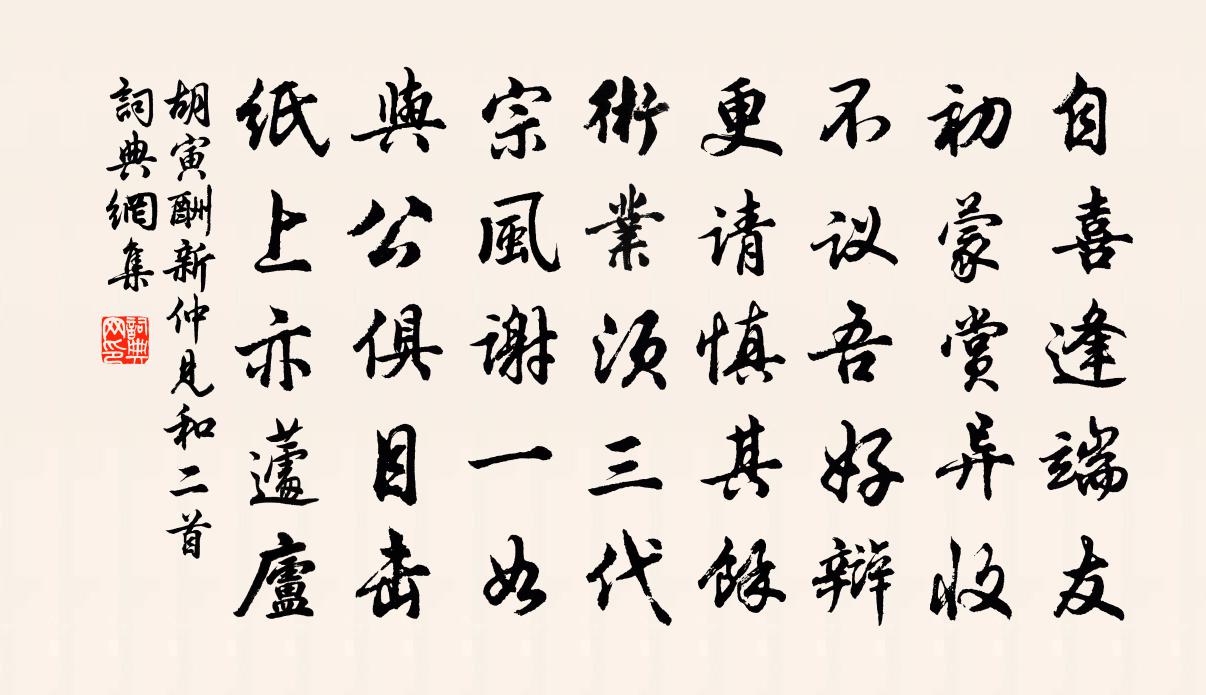 自喜逢端友
初蒙赏异收
不议吾好辩
更请慎其餘
術業须三代
宗風谢一如
與公俱目击
纸上亦蘧廬
胡寅酬新仲見和二首
詞典網集
詞典网印